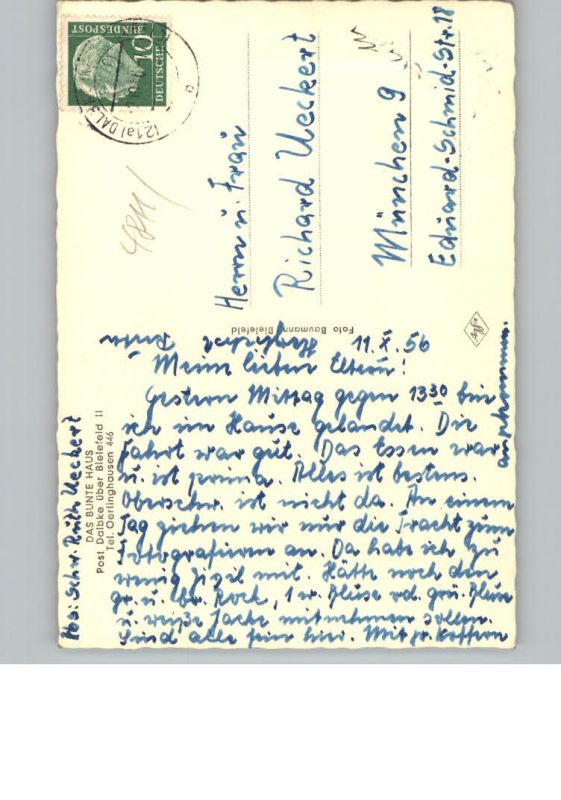 DEUTSCHE
BUNDESPOST
10
(21a) DAL
Herrn u. Frau
Richard Ueckert
München 9
Eduard-Schmid-Str. 18
4811
DAS BUNTE HAUS
Post Dalbke über Bielefeld II
Tel. Oerlinghausen 446
Abs: Schw. Ruth Ueckert
Foto Baumann, Bielefeld
11.X.56
Meine lieben Eltern!
Gestern Mittag gegen 13 30 bin
ich im Hause gelandet. Die
Fahrt war gut. Das Essen war
u. ist prima. Alles ist bestens.
Oberschw. ist nicht da. An einem
Tag ziehen wir nur die Tracht zum
Fotografieren an. Da habe ich zu
wenig Zivil mit. Hätte noch den
gr. u. Rock, 1 Bluse od. grü. Bluse
u. weiße Jacke mitnehmen sollen.
Sind alle fein hier. Mit gr. Koffern
angekommen.
Herzlichst Ruth